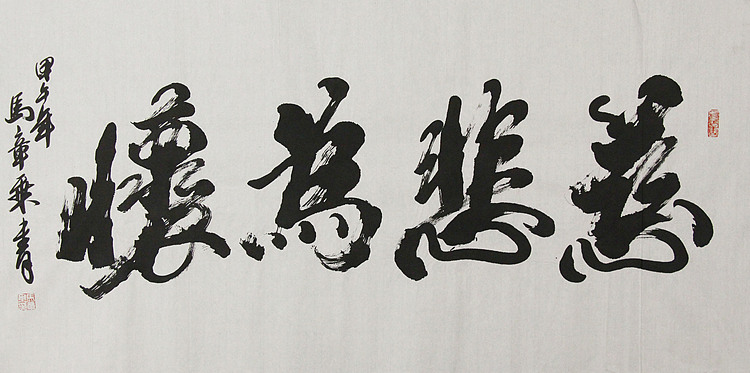 慈悲為懷
甲午年
馬章乘書